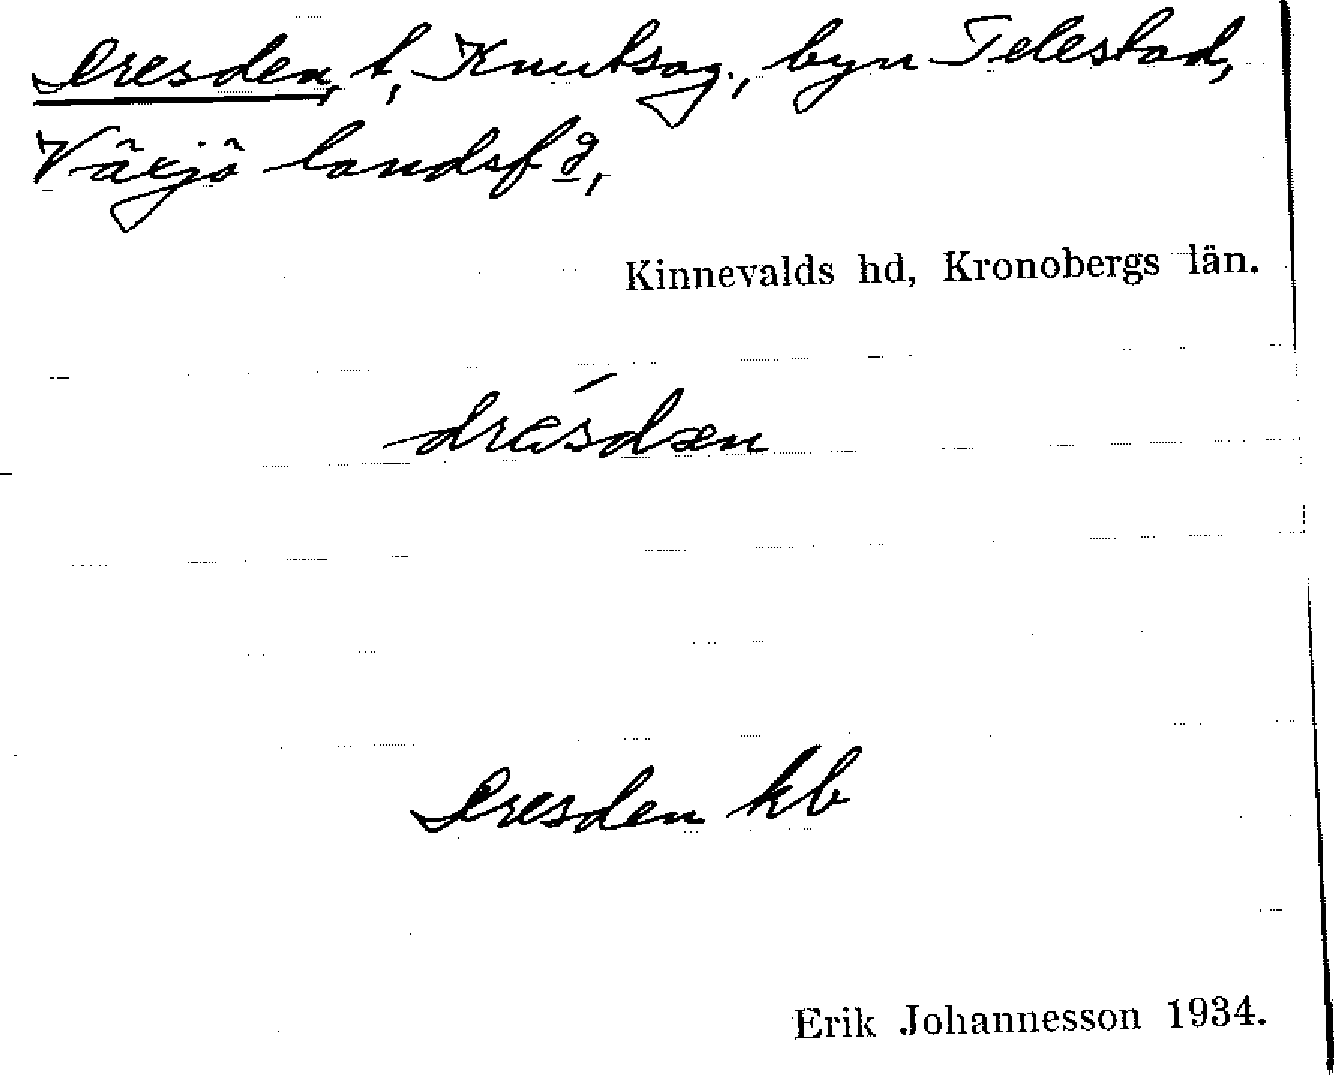 Dresden, t, Knutsag., byn Telestad,
Växjö landsf g,
Kinnevalds hd, Kronobergs län.
dräsdæn
Dresden kb
Erik Johannesson 1934.